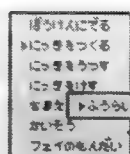 ぼうけんにでる
にっきをつくる
にっきをうつす
にっきをけす
かいそう
フェイのもんだい